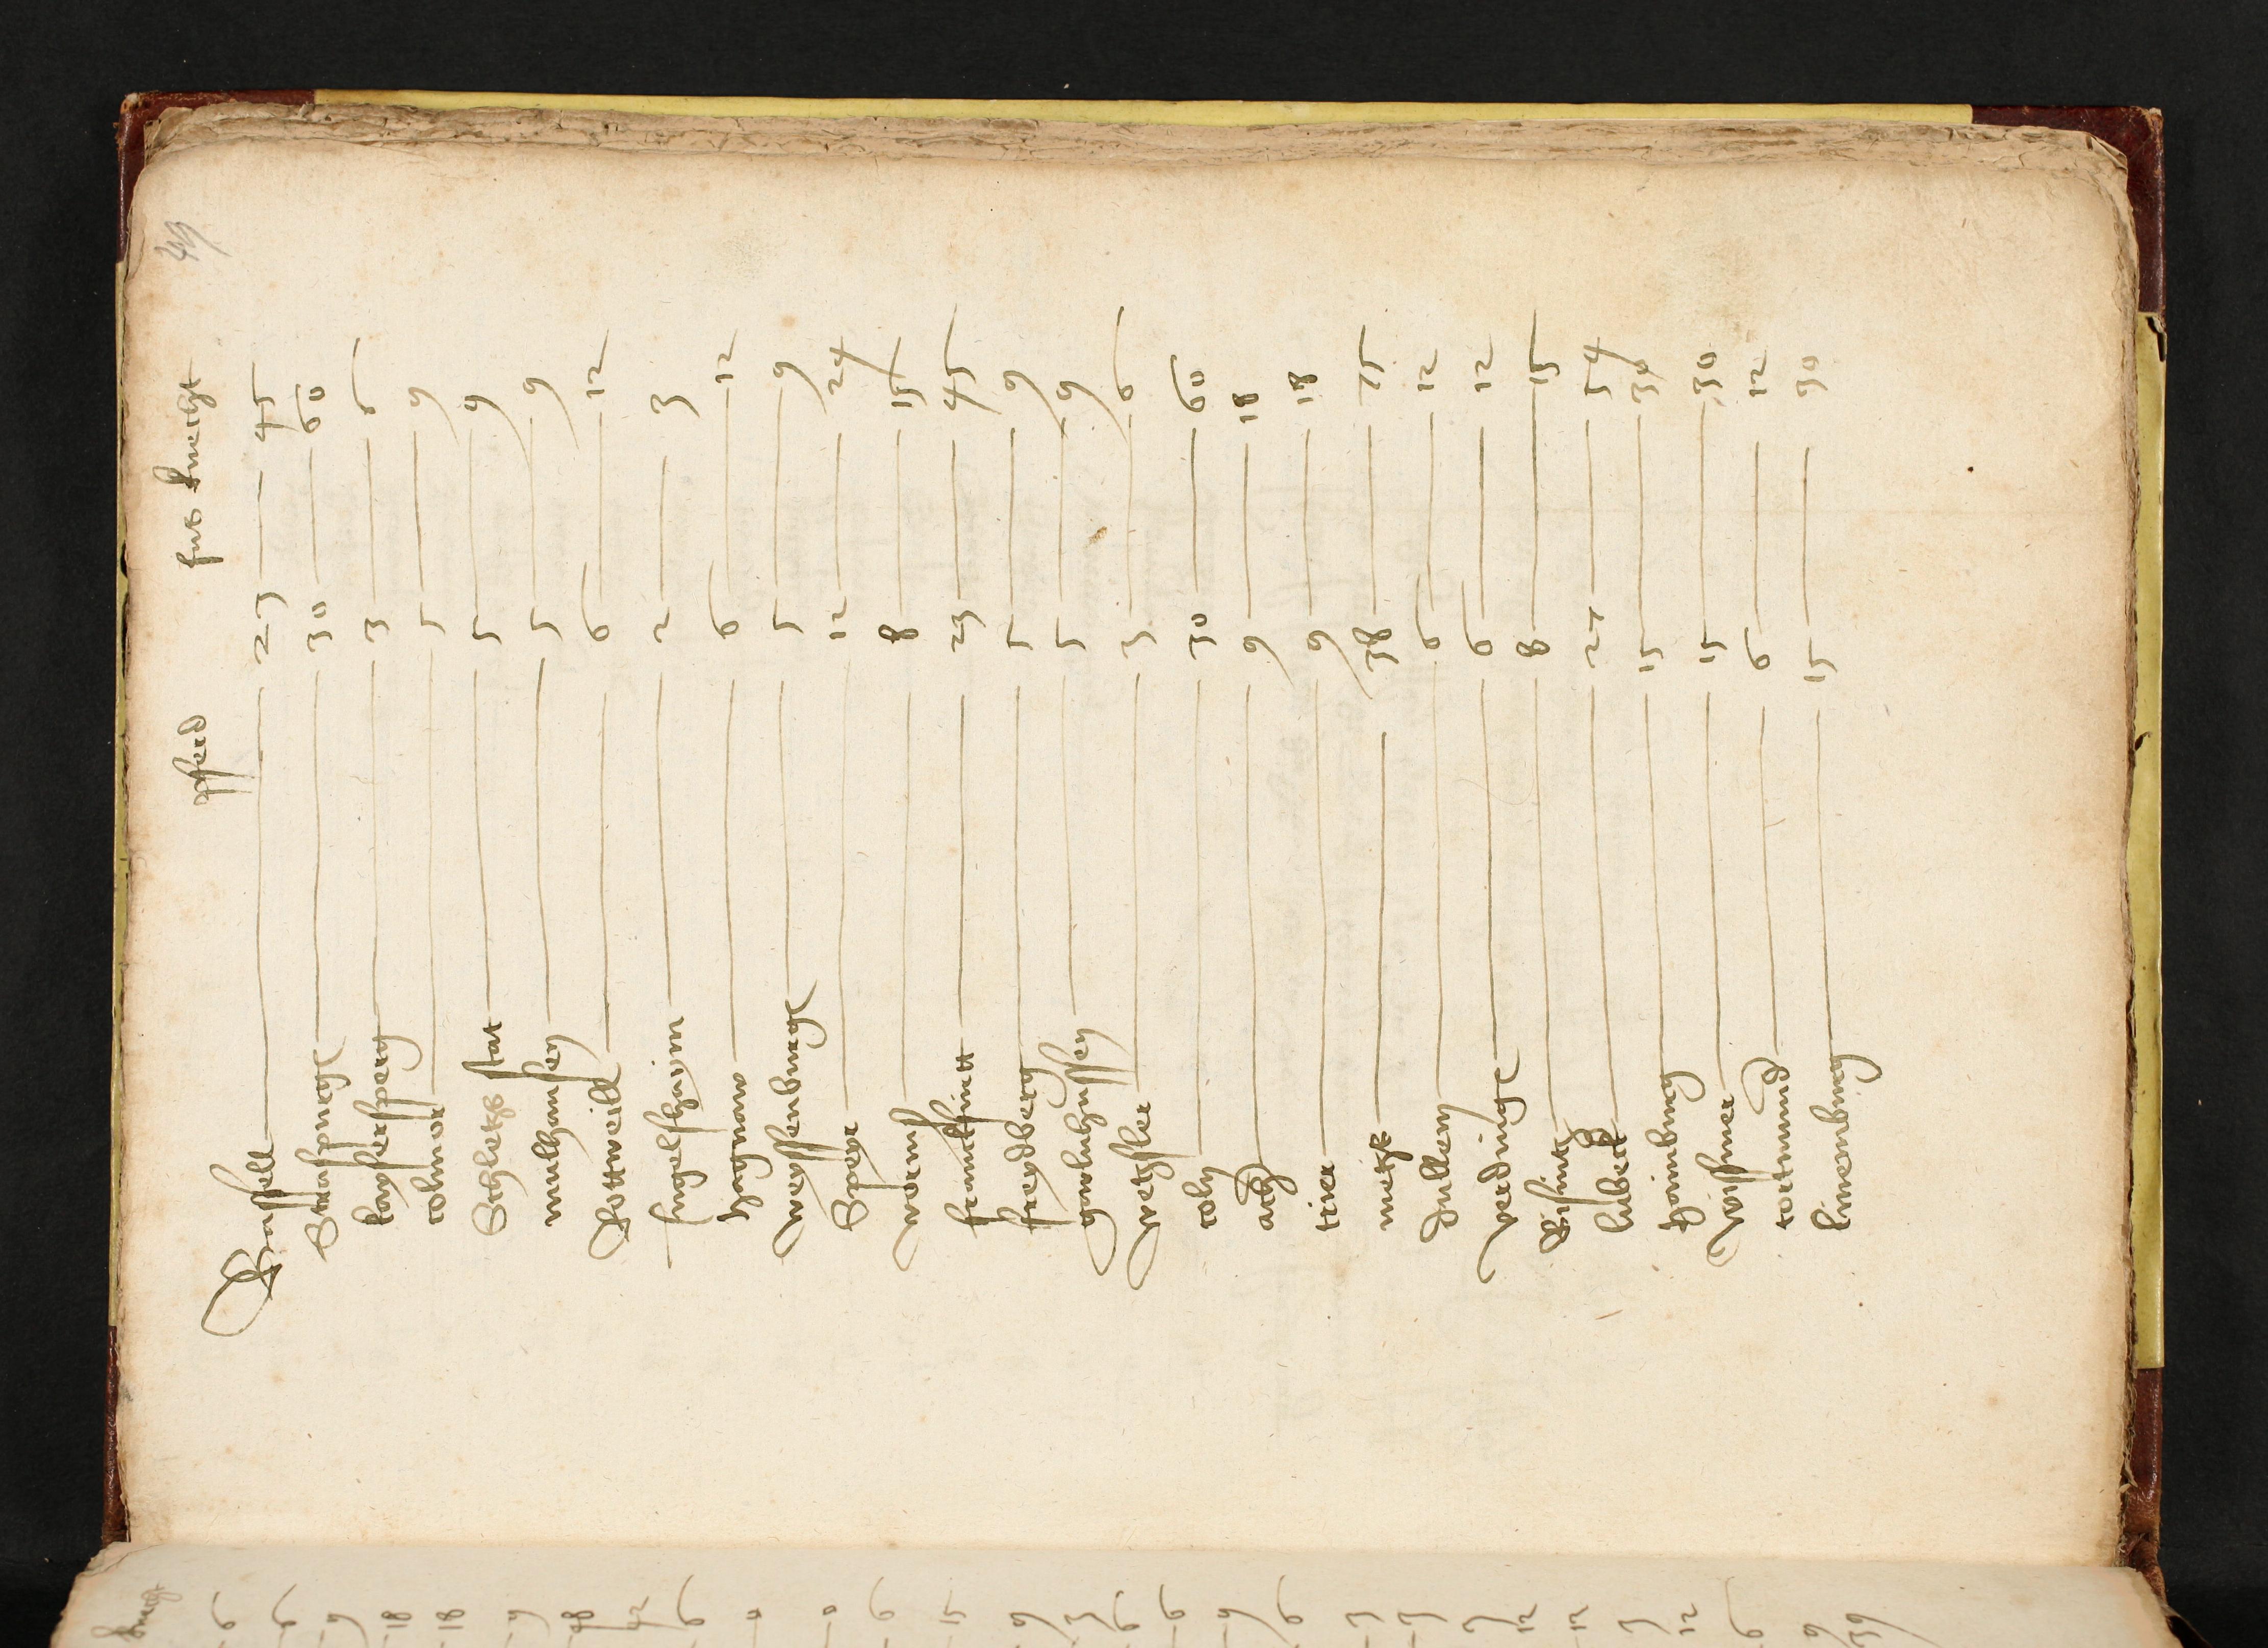 49
pferd fus knecht
Bassell 23 45
Straspurgk 30 60
kayserspergk 3 6
colmor 5 9
Schletzstat 5 9
mulhaussen 5 9
Rottweill 6 12
hagnaw 6 12
weyssenburgk 5 9
Speyr 12 24
worms 8 15
franckfurtt 23 45
freydbergk 5 9
geolnhussen 5 9
wetzsler 3 6
coln 30 60
ach 9 18
trier 9 18
metz 38 75
Dullen 6 12
verdungk 6 12
Bisuntz 8 15
lubeck 27 54
hamburg 15 30
Wissmer 15 30
tortmund 6 12
limenburg 15 30
knecht
6
6
9
18
18
9
48
42
6
0
0
6
15
9
3
6
6
9
6